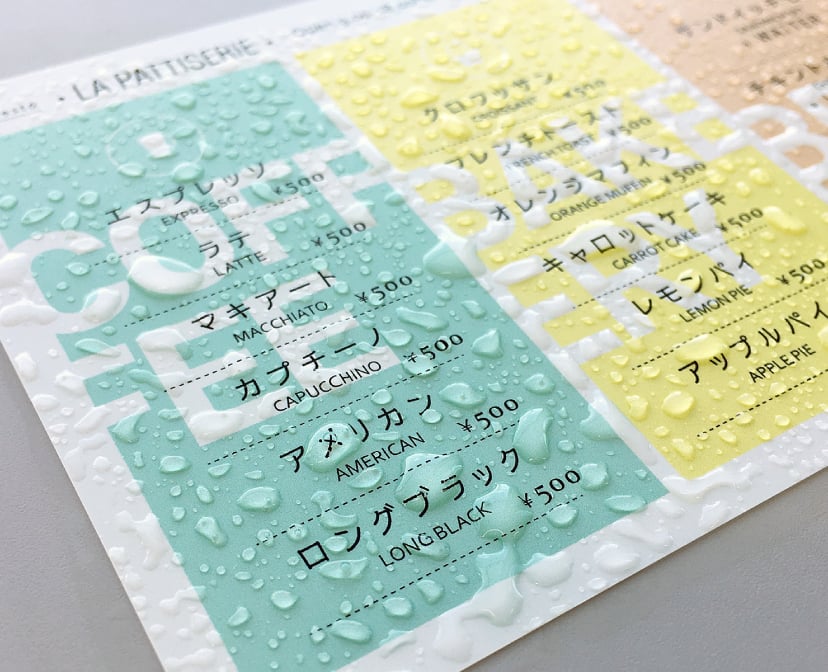 LA PATTISERIE
COFF
EE
エスプレッソ ¥500
EXPRESSO
ラテ ¥500
LATTE
マキアート ¥500
MACCHIATO
カプチーノ ¥500
CAPUCCHINO
アメリカン ¥500
AMERICAN
ロングブラック ¥500
LONG BLACK
BAKE
RY
クロワッサン ¥500
CROISSANT
フレンチトースト ¥500
FRENCH TOAST
オレンジマフィン ¥500
ORANGE MUFFIN
キャロットケーキ ¥500
CARROT CAKE
レモンパイ ¥500
LEMON PIE
アップルパイ
APPLE PIE